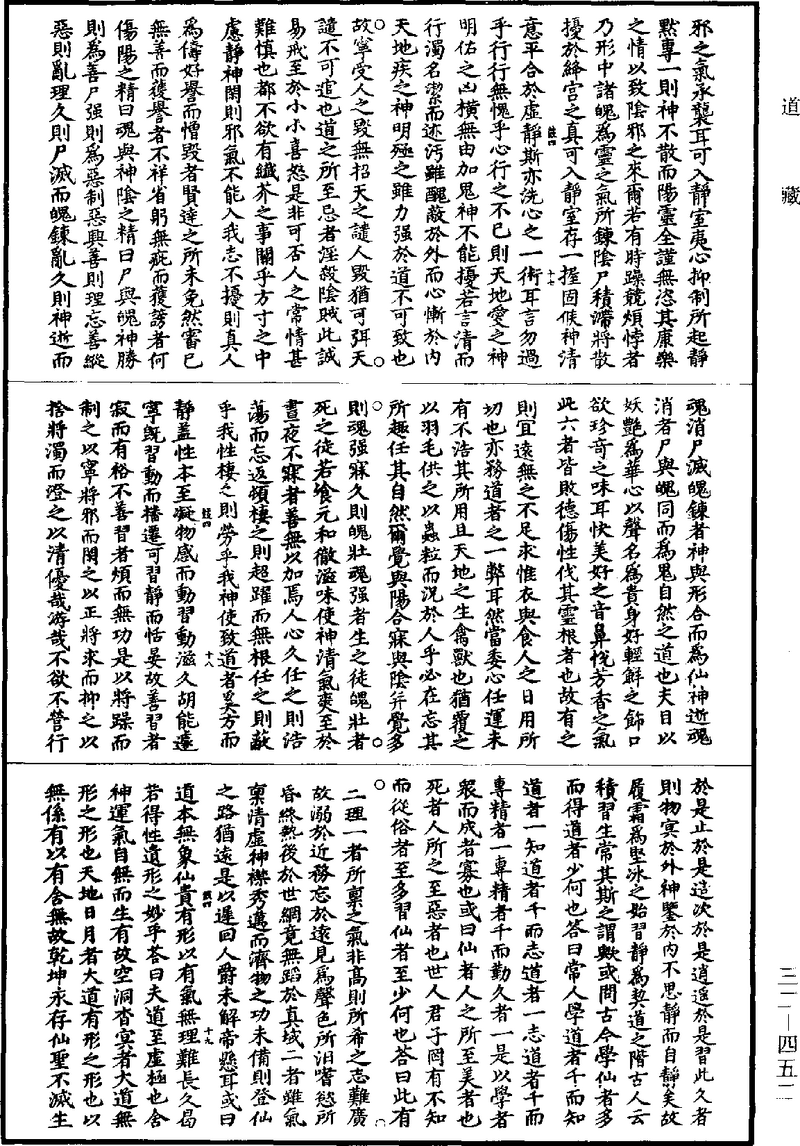 道藏
邪之氣承襲耳可入靜室夷心抑制所起靜
默專一則神不散而陽靈全謹無恣其康樂
之情以致陰邪之來爾若有時躁競煩悖者
乃形中諸魄為靈之氣所鍊陰尸積滯將散
擾於絳宮之真可入靜室存一握固候神清
註四 十七
意平合於虛靜斯亦洗心之一術耳言勿過
乎行行無愧乎心行之不已則天地愛之神
明佑之凶橫無由加鬼神不能擾若言清而
行濁名潔而迹污雖醜蔽於外而心慚於內
天地疾之神明殛之雖力强於道不可致也
故寧受人之毀無招天之譴人毀猶可弭天
譴不可逭也道之所至忌者淫殺陰賊此誠
易戒至於小小喜怒是非可否人之常情甚
難慎也都不欲有纖芥之事關乎方寸之中
慮靜神閑則邪氣不能入我志不擾則真人
為儔好譽而憎毀者賢達之所未免然審已
無善而獲譽者不祥省躬無疵而獲謗者何
傷陽之精曰魂與神陰之精曰尸與魄神勝
則為善尸强則為惡制惡興善則理忘善縱
惡則亂理久則尸滅而魄鍊亂久則神逝而
魂消尸滅魄鍊者神與形合而為仙神逝魂
消者尸與魄同而為鬼自然之道也夫目以
妖艷為華心以聲名為貴身好輕鮮之飾口
欲珍奇之味耳快美好之音鼻悅芳香之氣
此六者皆敗德傷性伐其靈根者也故有之
則宜遠無之不足求惟衣與食人之日用所
切也亦務道者之一弊耳然當委心任運未
有不浩其所用且天地之生禽獸也猶覆之
以羽毛供之以蟲粒而況於人乎必在忘其
所趣任其自然爾覺與陽合寐與陰并覺多
則魂强寐久則魄壯魂强者生之徒魄壯者
死之徒若飧元和徹滋味使神清氣爽至於
晝夜不寐者善無以加焉人心久任之則浩
蕩而忘返頓棲之則超躍而無根任之則蔽
乎我性棲之則勞乎我神使致道者奚方而
註四 十八
靜蓋性本至凝物感而動習動滋久胡能遽
寧既習動而播遷可習靜而恬晏故善習者
寂而有裕不善習者煩而無功是以將躁而
制之以寧將邪而閑之以正將求而抑之以
捨將濁而澄之以清優哉游哉不欲不營行
於是止於是造次於是逍遙於是習此久者
則物冥於外神鑒於內不思靜而自靜矣故
履霜為堅冰之始習靜為契道之階古人云
積習生常其斯之謂歟或問古今學仙者多
而得道者少何也答曰常人學道者千而知
道者一知道者千而志道者一志道者千而
專精者一專精者千而勤久者一是以學者
衆而成者寡也或曰仙者人之所至美者也
死者人所之至惡者也世人君子罔有不知
而從俗者至多習仙者至少何也答曰此有
二理一者所稟之氣非高則所希之志難廣
故溺於近務忘於遠見為聲色所汨嗜慾所
昏終然後於世網竟無蹈於真域二者雖氣
稟清虛神襟秀邁而濟物之功未備則登仙
之路猶遠是以遲回人爵未解帝懸耳或曰
註四 十九
道本無象仙貴有形以有氣無理難長久曷
若得性遺形之妙乎荅曰夫道至虛極也含
神運氣自無而生有故空洞杳冥者大道無
形之形也天地日月者大道有形之形也以
無係有以有含無故乾坤永存仙聖不滅生
三二—四五二